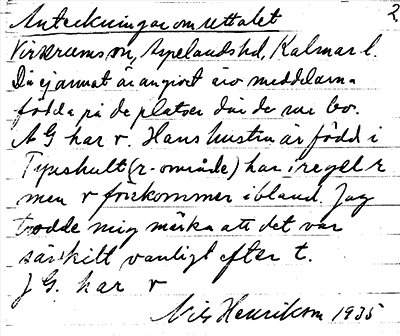 2
Anteckningar om uttalet
Virserums sn, Aspelands hd, Kalmar l.
Då ej annat är angivet äro meddelarna
födda på de platser där de nu bo.
A G har r. Hans hustru är född i
Tynshult (r-område) har i regel r
men r förekommer ibland. Jag
trodde mig märka att det var
särskilt vanligt efter t.
J G. har r
Nils Henrikson 1935